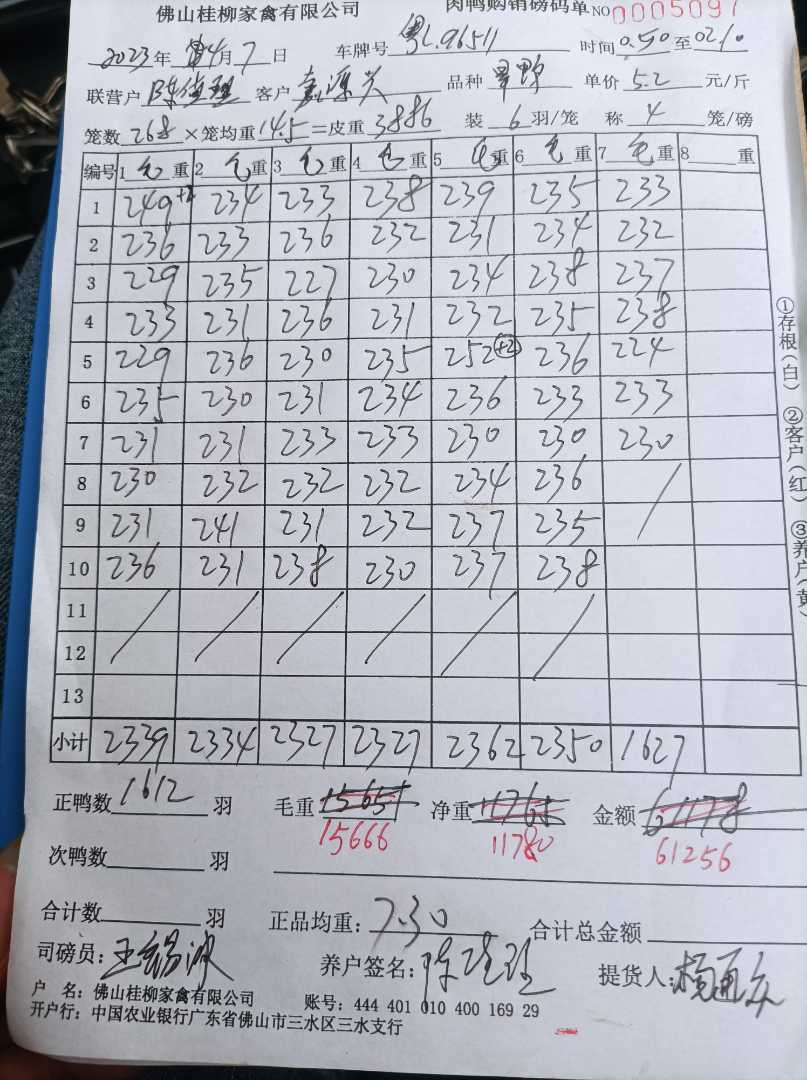 佛山桂柳家禽有限公司 肉鸭购销磅码单 NO 0005097
2023年 4月7日 车牌号 粤L.96511 时间 0.50 至 02/0
联营户 客户 品种 单价 5.2 元/斤
笼数 268 ×笼均重 14.5 =皮重 3886 装 6 羽/笼 称 4 笼/磅
编号 1 毛 重 2 毛 重 3 毛 重 4 毛 重 5 毛 重 6 毛 重 7 毛 重 8 重
1 249+2 234 233 238 239 235 233
2 236 233 236 232 231 234 232
3 229 235 227 230 234 238 237
4 233 231 236 231 232 235 238
5 229 236 230 235 252+2 236 224
6 235 230 231 234 236 233 233
7 231 231 233 233 230 230 230
8 230 232 232 232 234 236
9 231 241 231 232 237 235
10 236 231 238 230 237 238
11
12
13
小计 2339 2334 2327 2327 2362 2350 1627
正鸭数 1612 羽 毛重 15651 净重 11765 金额 61178
15666 11780 61256
次鸭数 羽
合计数 羽 正品均重: 7.30 合计总金额
司磅员: 养户签名: 提货人:
户 名: 佛山桂柳家禽有限公司 账号: 444 401 010 400 169 29
开户行: 中国农业银行广东省佛山市三水区三水支行
①存根(白) ②客户(红) ③养户(黄)